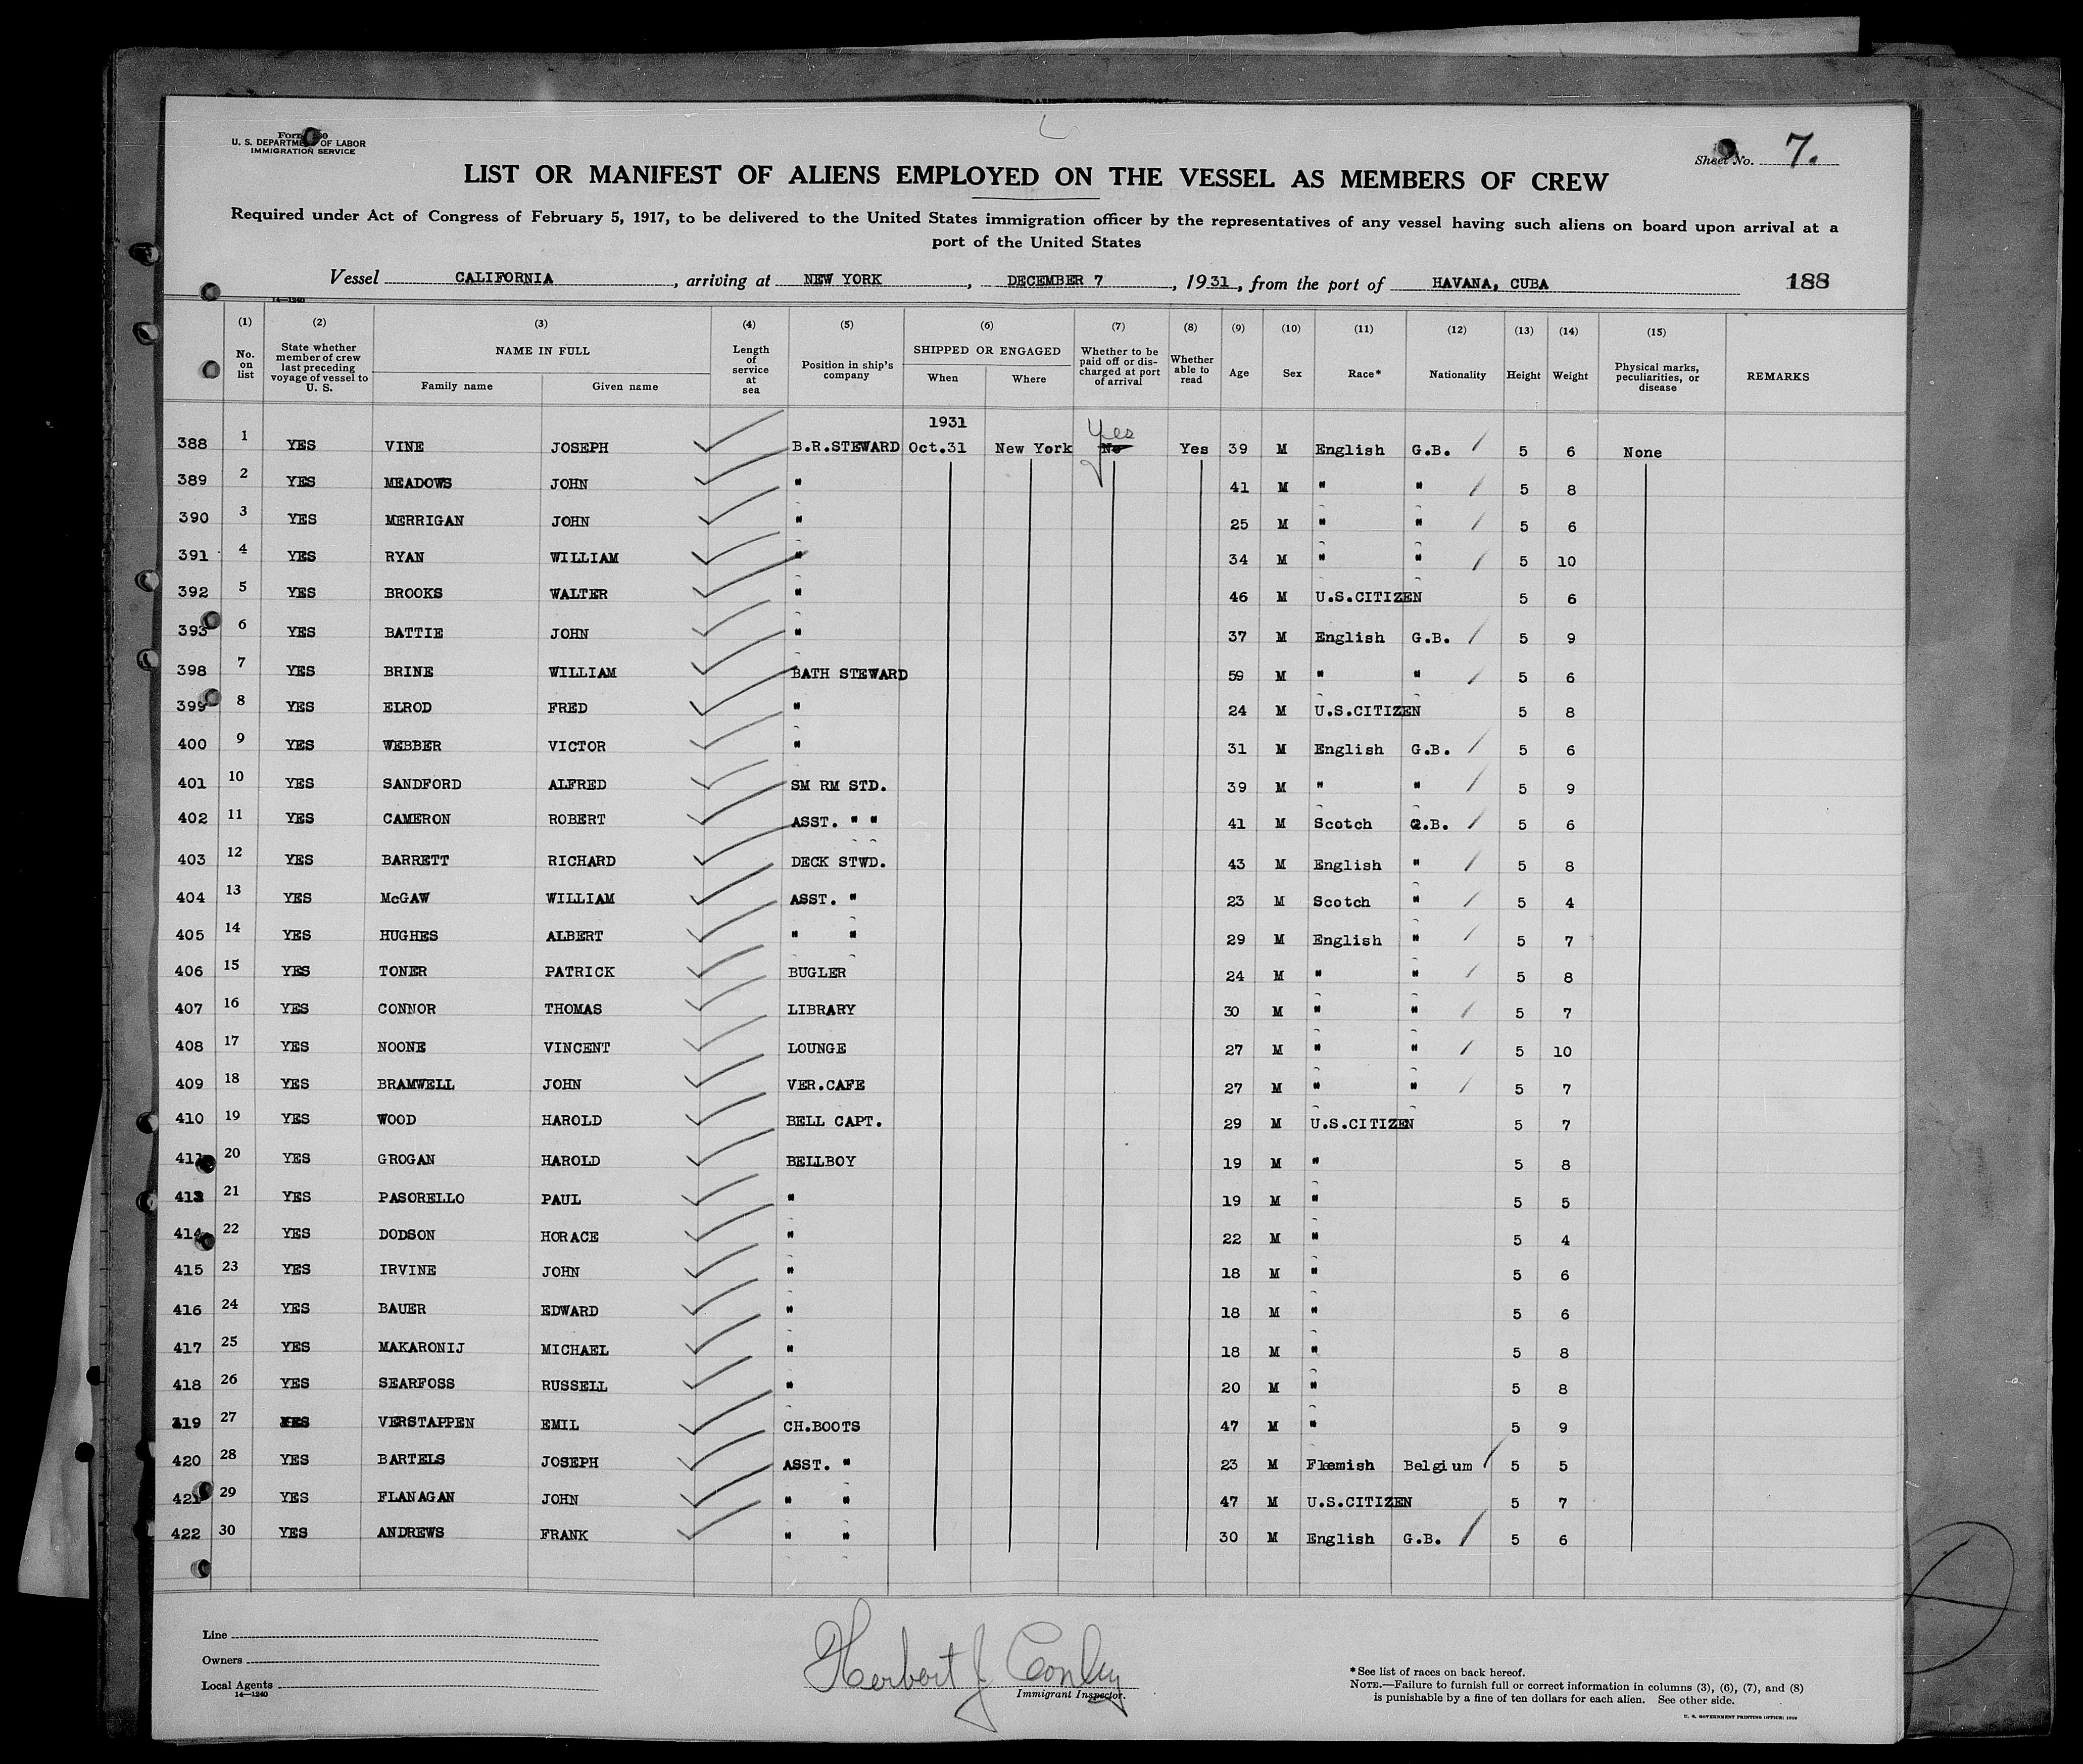 U. S. DEPARTMENT OF LABOR
IMMIGRATION SERVICE
Sheet No. 7.
LIST OR MANIFEST OF ALIENS EMPLOYED ON THE VESSEL AS MEMBERS OF CREW
Required under Act of Congress of February 5, 1917, to be delivered to the United States immigration officer by the representatives of any vessel having such aliens on board upon arrival at a
port of the United States
Vessel CALIFORNIA, arriving at NEW YORK, DECEMBER 7, 1931, from the port of HAVANA, CUBA 188
14—1240
(1) (2) (3) (4) (5) (6) (7) (8) (9) (10) (11) (12) (13) (14) (15)
No. on list
State whether member of crew last preceding voyage of vessel to U. S.
NAME IN FULL
Family name Given name
Length of service at sea
Position in ship's company
SHIPPED OR ENGAGED
When Where
Whether to be paid off or discharged at port of arrival
Whether able to read
Age Sex Race* Nationality Height Weight
Physical marks, peculiarities, or disease
REMARKS
1931
Yes
388 1 YES VINE JOSEPH B.R.STEWARD Oct.31 New York No Yes 39 M English G.B. 5 6 None
389 2 YES MEADOWS JOHN " 41 M " " 5 8
390 3 YES MERRIGAN JOHN " 25 M " " 5 6
391 4 YES RYAN WILLIAM " 34 M " " 5 10
392 5 YES BROOKS WALTER " 46 M U.S.CITIZEN 5 6
393 6 YES BATTIE JOHN " 37 M English G.B. 5 9
398 7 YES BRINE WILLIAM BATH STEWARD 59 M " " 5 6
399 8 YES ELROD FRED " 24 M U.S.CITIZEN 5 8
400 9 YES WEBBER VICTOR " 31 M English G.B. 5 6
401 10 YES SANDFORD ALFRED SM RM STD. 39 M " " 5 9
402 11 YES CAMERON ROBERT ASST. " " 41 M Scotch G.B. 5 6
403 12 YES BARRETT RICHARD DECK STWD. 43 M English " 5 8
404 13 YES McGAW WILLIAM ASST. " 23 M Scotch " 5 4
405 14 YES HUGHES ALBERT " " 29 M English " 5 7
406 15 YES TONER PATRICK BUGLER 24 M " " 5 8
407 16 YES CONNOR THOMAS LIBRARY 30 M " " 5 7
408 17 YES NOONE VINCENT LOUNGE 27 M " " 5 10
409 18 YES BRAMWELL JOHN VER.CAFE 27 M " " 5 7
410 19 YES WOOD HAROLD BELL CAPT. 29 M U.S.CITIZEN 5 7
411 20 YES GROGAN HAROLD BELLBOY 19 M " 5 8
413 21 YES PASORELLO PAUL " 19 M " 5 5
414 22 YES DODSON HORACE " 22 M " 5 4
415 23 YES IRVINE JOHN " 18 M " 5 6
416 24 YES BAUER EDWARD " 18 M " 5 6
417 25 YES MAKARONIJ MICHAEL " 18 M " 5 8
418 26 YES SEARFOSS RUSSELL " 20 M " 5 8
419 27 YES VERSTAPPEN EMIL CH.BOOTS 47 M " 5 9
420 28 YES BARTELS JOSEPH ASST. " 23 M Flemish Belgium 5 5
421 29 YES FLANAGAN JOHN " " 47 M U.S.CITIZEN 5 7
422 30 YES ANDREWS FRANK " " 30 M English G.B. 5 6
Line
Owners
Local Agents
14—1240
Herbert J Conley
Immigrant Inspector.
*See list of races on back hereof.
NOTE.—Failure to furnish full or correct information in columns (3), (6), (7), and (8)
is punishable by a fine of ten dollars for each alien. See other side.